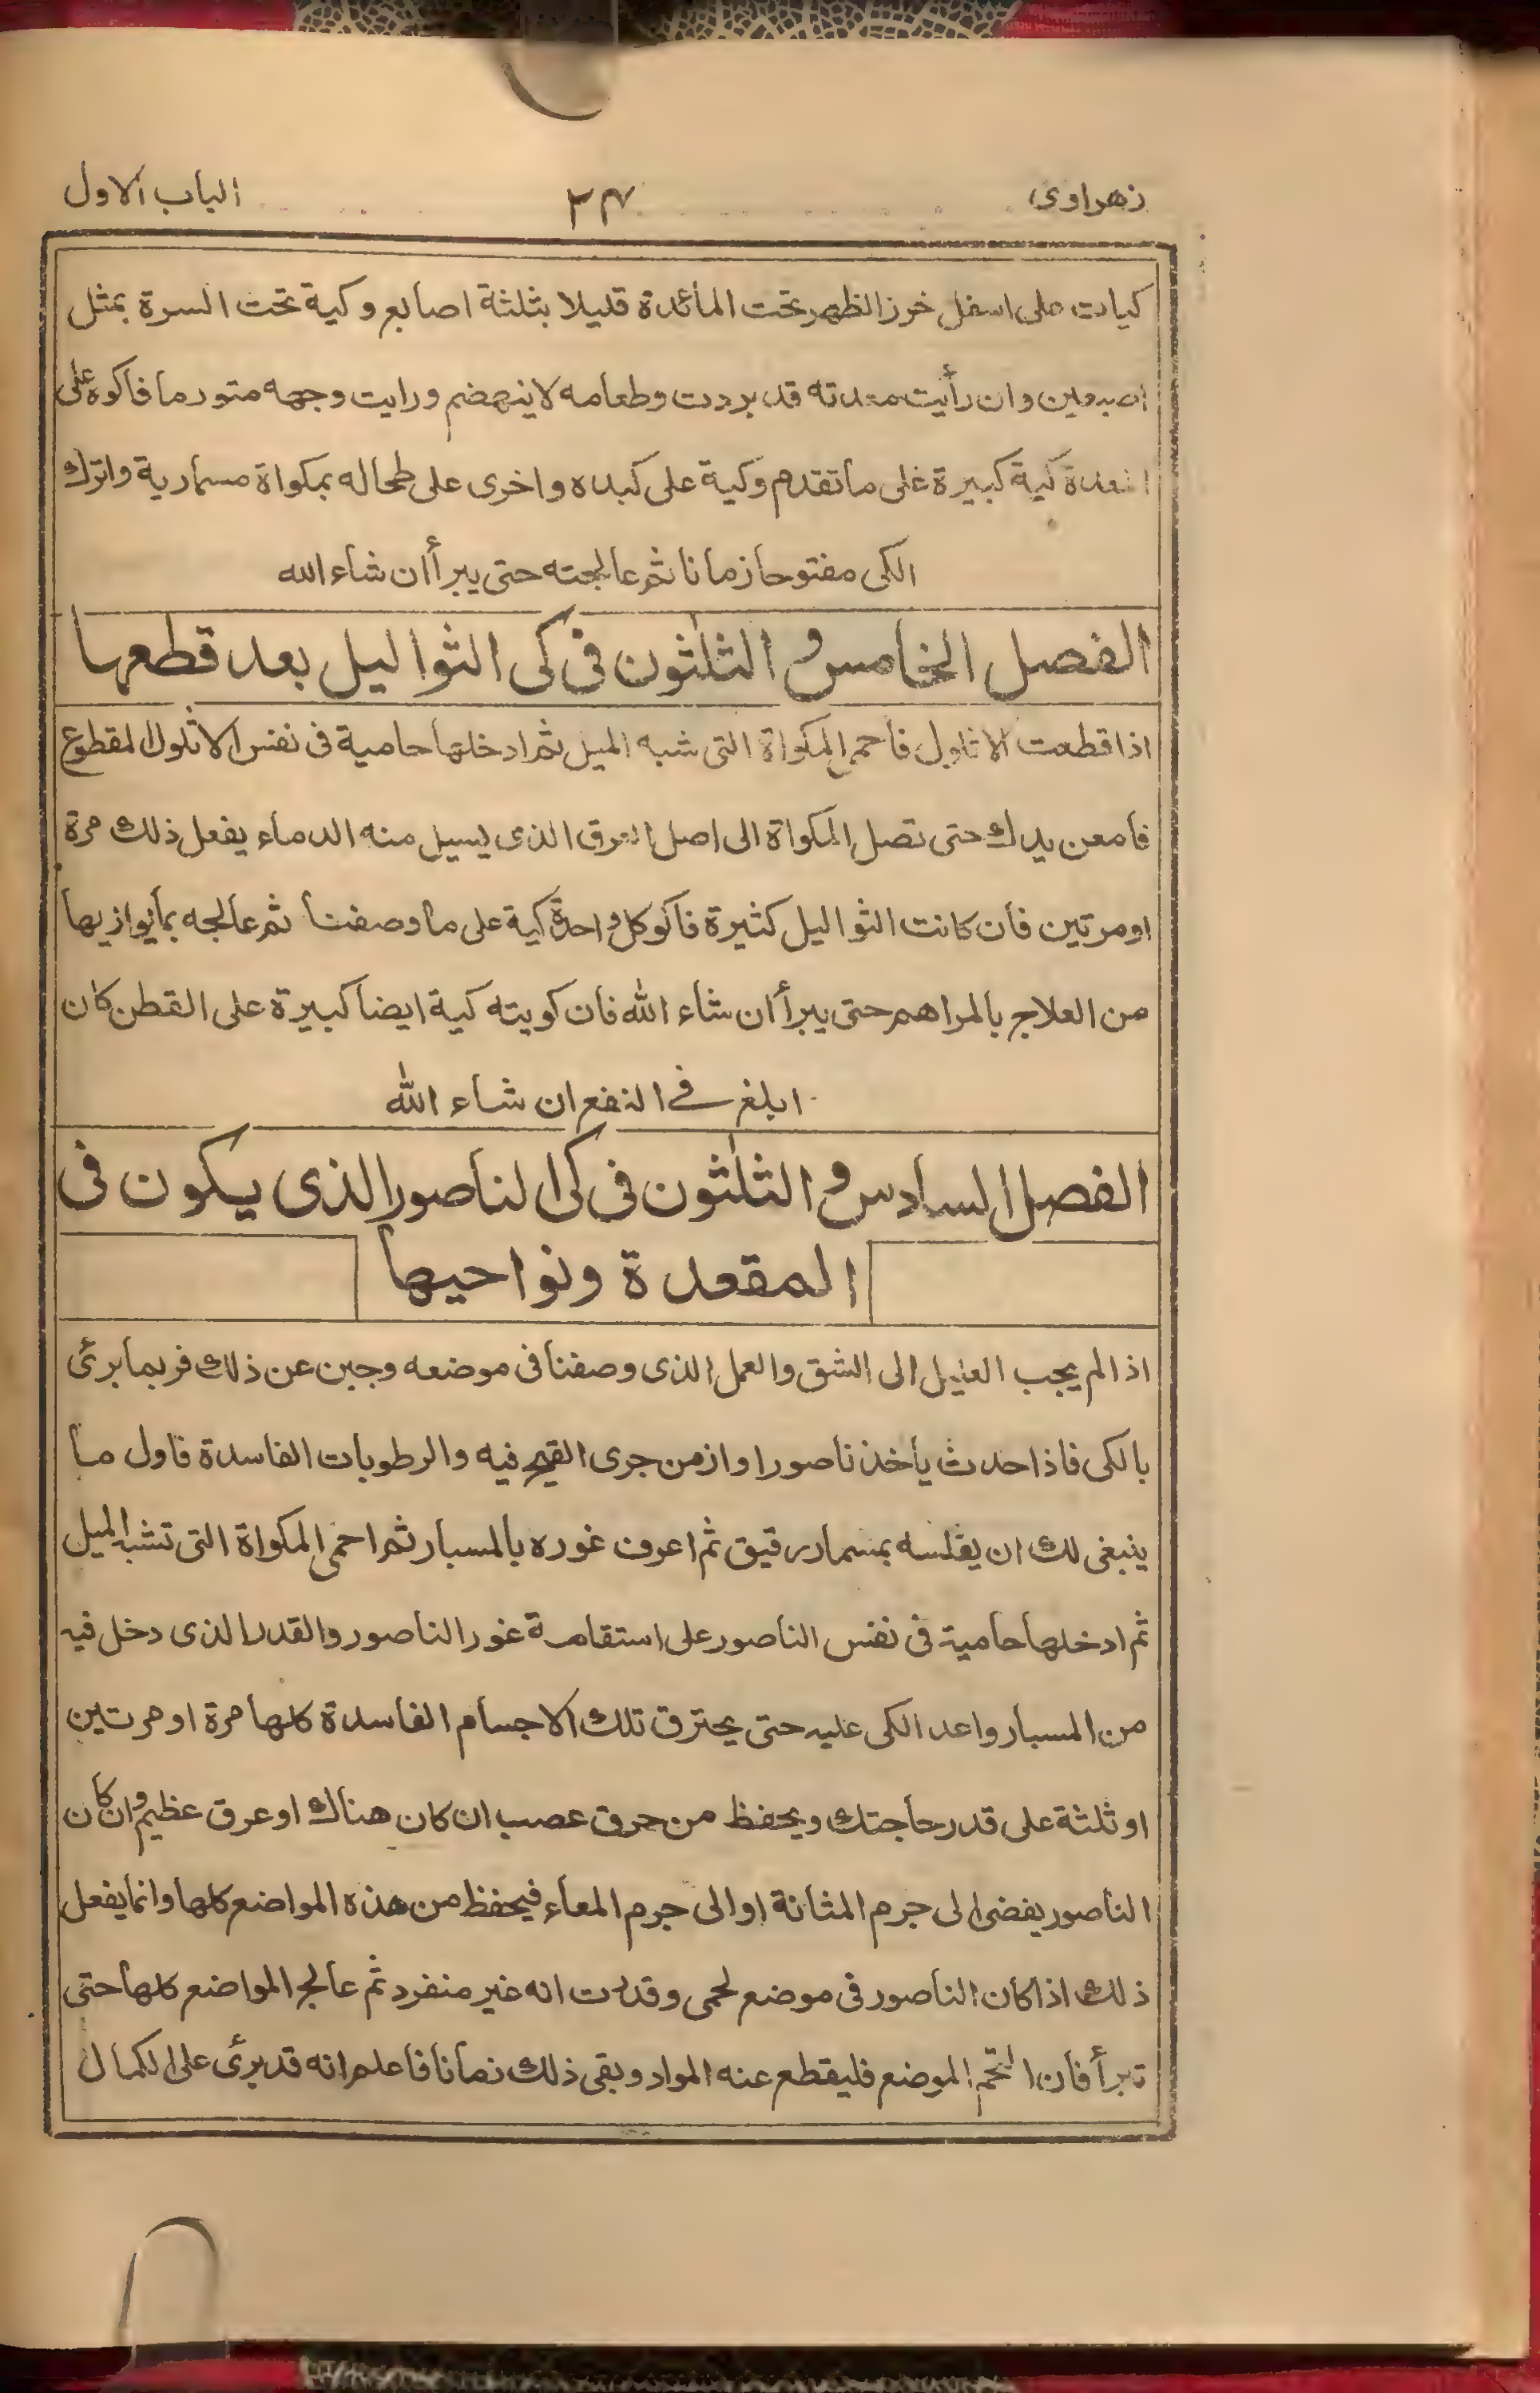 زهراوى ٣٤ الباب الاول
كيات على اسفل خرز الظهر تحت المائدة قليلا بثلثة اصابع وكية تحت السرة بمثل
اصبعين وان رأيت معدته قد بردت وطعامه لا ينهضم ورايت وجهه متورما فاكوه على
المعدة كية كبيرة على ما تقدم وكية على كبده واخرى على طحاله بمكواة مسمارية واترك
الكى مفتوحا زمانا ثم عالجته حتى يبرأ ان شاء الله
الفصل الخامس و الثلثون فى كى الثواليل بعد قطعها
اذا قطعت الاثاليل فأحم المكواة التى شبه الميل ثم ادخلها حامية فى نفس الاثلول المقطوع
فأمعن يدك حتى تصل المكواة الى اصل العرق الذى يسيل منه الدماء يفعل ذلك مرة
او مرتين فأن كانت الثواليل كثيرة فأكو كل واحدة كية على ما وصفنا ثم عالجه بما يوازيها
من العلاج بالمراهم حتى يبرأ ان شاء الله فأن كويته كية ايضا كبيرة على القطن كان
ابلغ فے النفع ان شاء الله
الفصل السادس و الثلثون فى كى الناصور الذى يكون فى
المقعدة ونواحيها
اذا لم يجب العليل الى الشق والعمل الذى وصفنا فى موضعه وجبن عن ذلك فربما برئ
بالكى فاذا حدث يأخذ ناصورا وازمن جرى القيح فيه والرطوبات الفاسدة فاول ما
ينبغى لك ان يقلسه بمسمار رقيق ثم اعرف غوره بالمسبار ثم احمى المكواة التى تشبه الميل
ثم ادخلها حامية فى نفس الناصور على استقامة غور الناصور والقدر الذى دخل فيه
من المسبار واعد الكى عليه حتى يحترق تلك الاجسام الفاسدة كلها مرة او مرتين
او ثلثة على قدر حاجتك ويحفظ من حرق عصب ان كان هناك او عرق عظيم وان كان
الناصور يفضى الى جرم المثانة او الى جرم المعاء فيحفظ من هذه المواضع كلها وانما يفعل
ذلك اذا كان الناصور فى موضع لحمى وقدرت انه غير منفرد ثم عالج المواضع كلها حتى
تبرأ فأن التحم الموضع فليقطع عنه المواد وبقى ذلك زمانا فأعلم انه قد برئ على الكمال